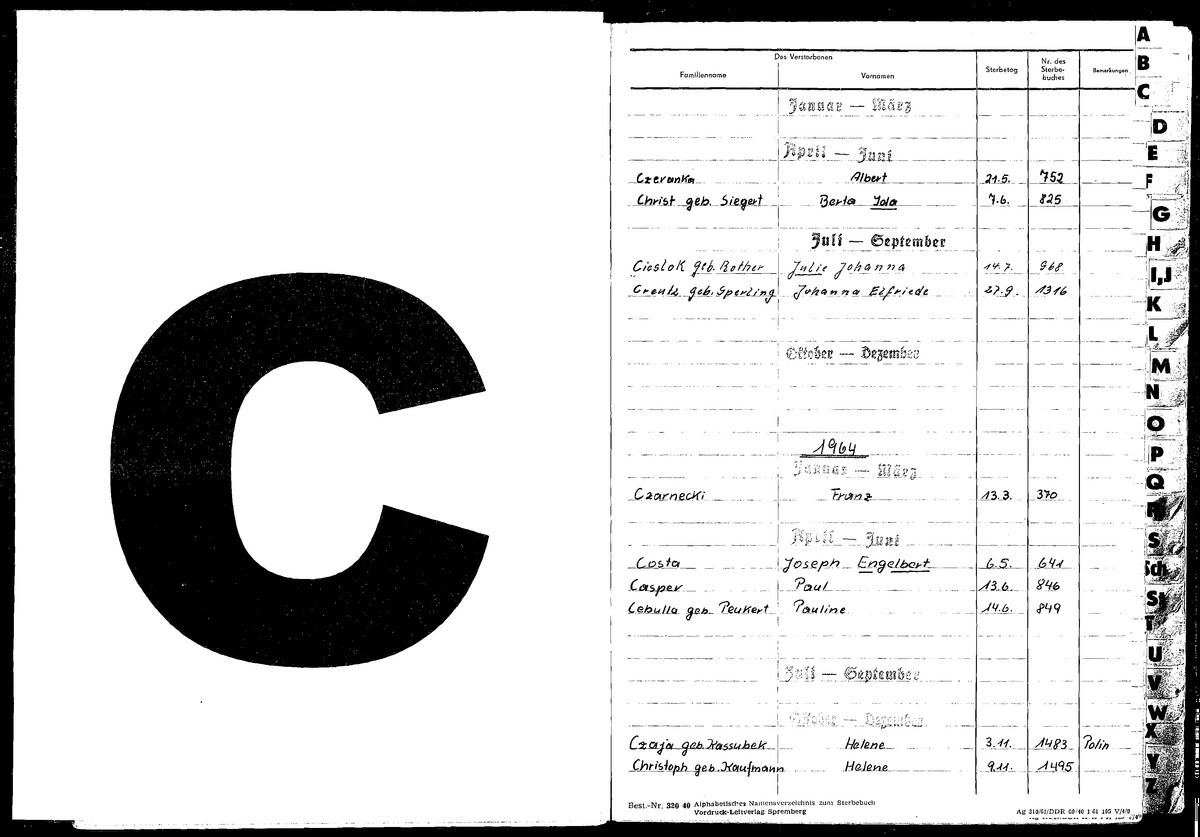 C
Des Verstorbenen
Familienname Vornamen Sterbetag Nr. des Sterbe-buches Bemerkungen
Januar — März
April — Juni
Czeranka Albert 21.5. 752
Christ geb. Siegert Berta Ida 7.6. 825
Juli — September
Cioslok geb. Rother Julie Johanna 14.7. 968
Creutz geb. Sperling Johanna Elfriede 27.9. 1316
Oktober — Dezember
1964
Januar — März
Czarnecki Franz 13.3. 370
April — Juni
Costa Joseph Engelbert 6.5. 641
Casper Paul 13.6. 846
Cebulla geb. Peukert Pauline 14.6. 849
Juli — September
Oktober — Dezember
Czaja geb. Kassubek Helene 3.11. 1483 Polin
Christoph geb. Kaufmann Helene 9.11. 1495
Best.-Nr. 320 40 Alphabetisches Namensverzeichnis zum Sterbebuch
Vordruck-Leitverlag Spremberg
A
B
C
D
E
F
G
H
I,J
K
L
M
N
O
P
Q
R
S
Sch
St
T
U
V
W
X
Y
Z